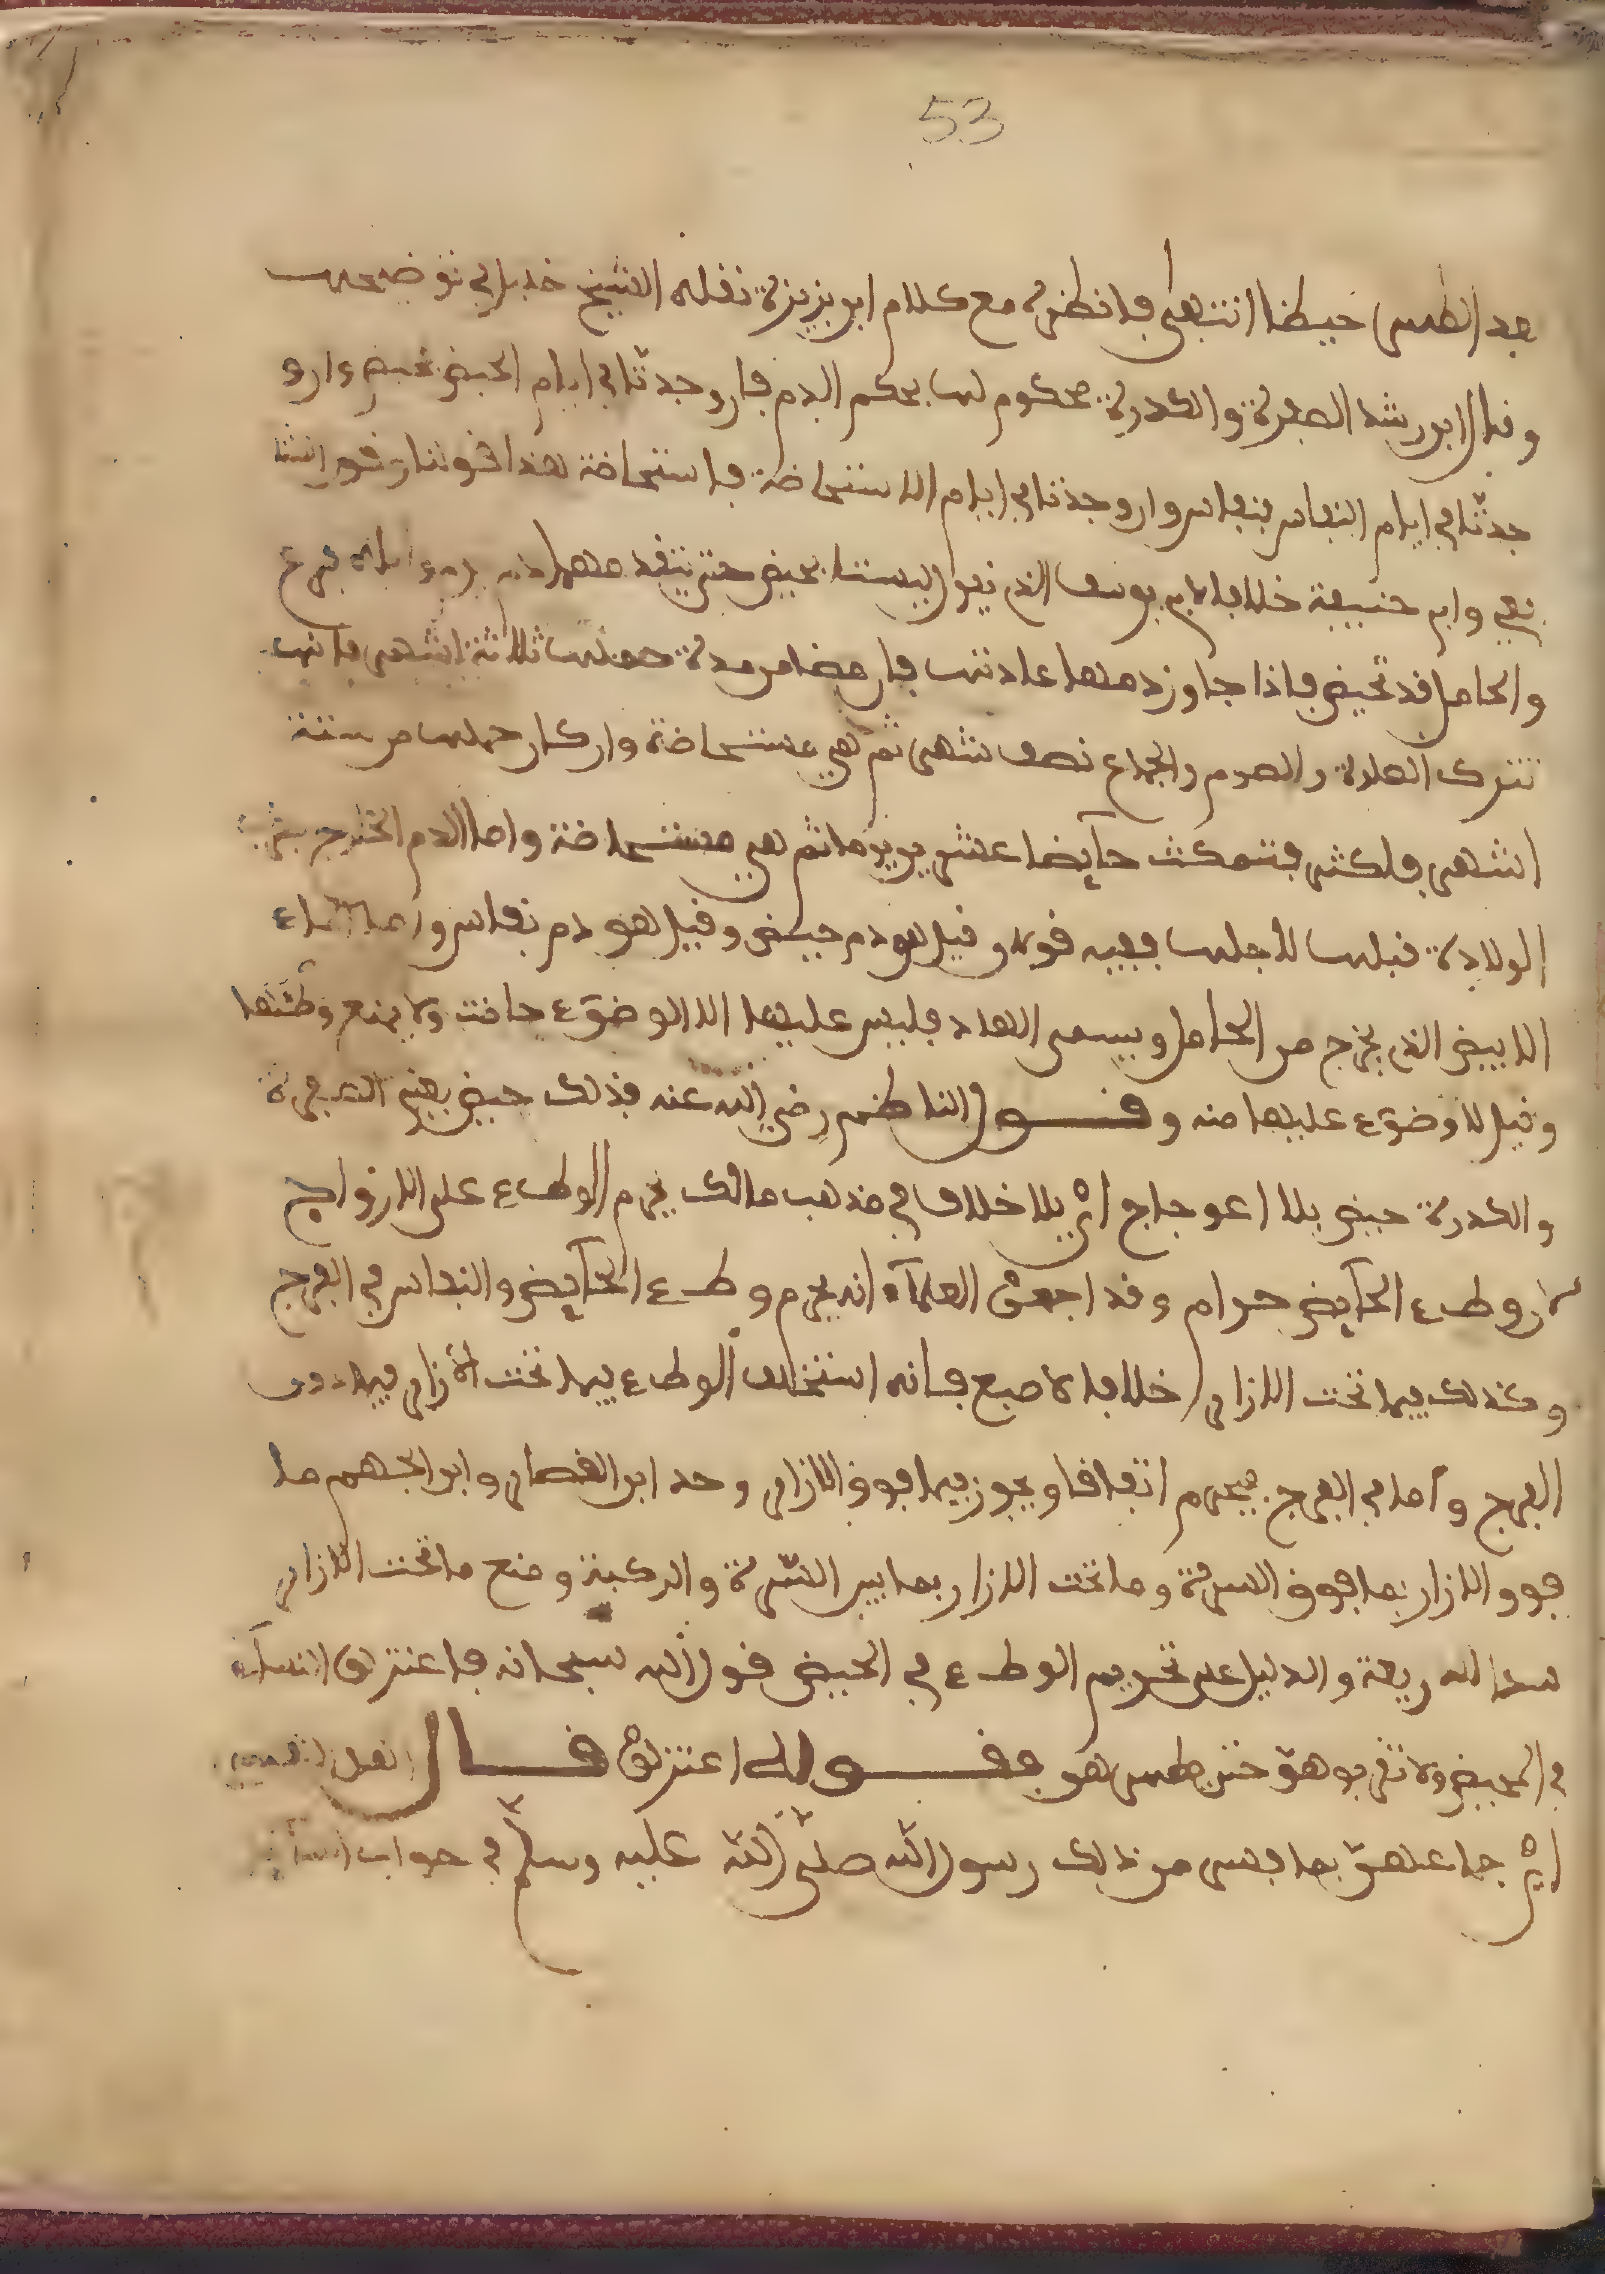 53
بعد الطهر حيطا انتهى فانظره مع كلام ابن بزيزة نقله الشيخ خليل في توضيحه
وقال ابن رشد الصفرة والكدرة محكوم لها بحكم الدم فان وجدتا في ايام الحيض فحيض وان و
جدتا في ايام النفاس فنفاس وان وجدتا في ايام الاستحاضة فاستحاضة هذا قولنا وقول الشا
فعي وابي حنيفة خلافا لابي يوسف الذي يقول ليستا بحيض حتى يتقدمهما دم فرع
والحامل قد تحيض فاذا جاوز دمها عادتها فان مضا من مدة حملها ثلاثة اشهر فانها
تترك الصلاة والصوم والجماع نصف شهر ثم هي مستحاضة وان كان حملها من ستة
اشهر فاكثر فتمكث حايضا عشرين يوما ثم هي مستحاضة واما الدم الخارج
الولادة قبلها لاجلها ففيه قولان قيل هو دم حيض وقيل هو دم نفاس واما الماء
الابيض الذي يخرج من الحامل ويسمى الهاد فليس عليها الا الوضوء خافت ولا يمنع وطئها
وقيل لا وضوء عليها منه وقول الناظم رضي الله عنه فذلك حيض يعني الصفرة
والكدرة حيض بلا اعوجاج اي بلا خلاف في مذهب مالك يحرم الوطء على الازواج
لان وطء الحايض حرام وقد اجمع العلماء انه يحرم وطء الحايض والنفاس في الفرج
وكذلك فيما تحت الازار خلافا لاصبغ فانه استخف الوطء فيما تحت الازار فيما دون
الفرج واما في الفرج فيحرم اتفاقا ويجوز فيما فوق الازار وحد ابن القصار وابن الجهم ما
فوق الازار بما فوق السرة وما تحت الازار بما بين السرة والركبة ومنع ما تحت الازار
سدا للذريعة والدليل على تحريم الوطء في الحيض قول الله سبحانه فاعتزلوا النساء
في المحيض ولا تقربوهن حتى يطهرن فقوله اعتزلوا قال اهل
اي جماعهن بما فسر من ذلك رسول الله صلى الله عليه وسلم في جواب